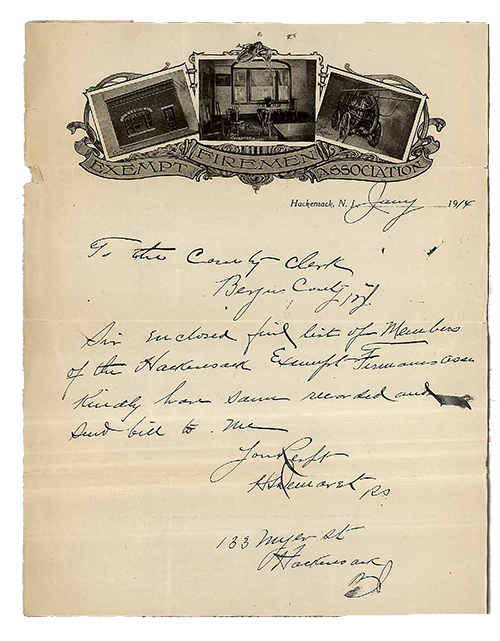 EXEMPT FIREMEN ASSOCIATION
Hackensack, N. J. Jany 1914
To the County Clerk
Bergen County N J
Sir enclosed find list of Members
of the Hackensack Exempt Firemans assn
Kindly have same recorded and
send bill to me
Your Resft
Demarest
133 Myer St
Hackensack
NJ